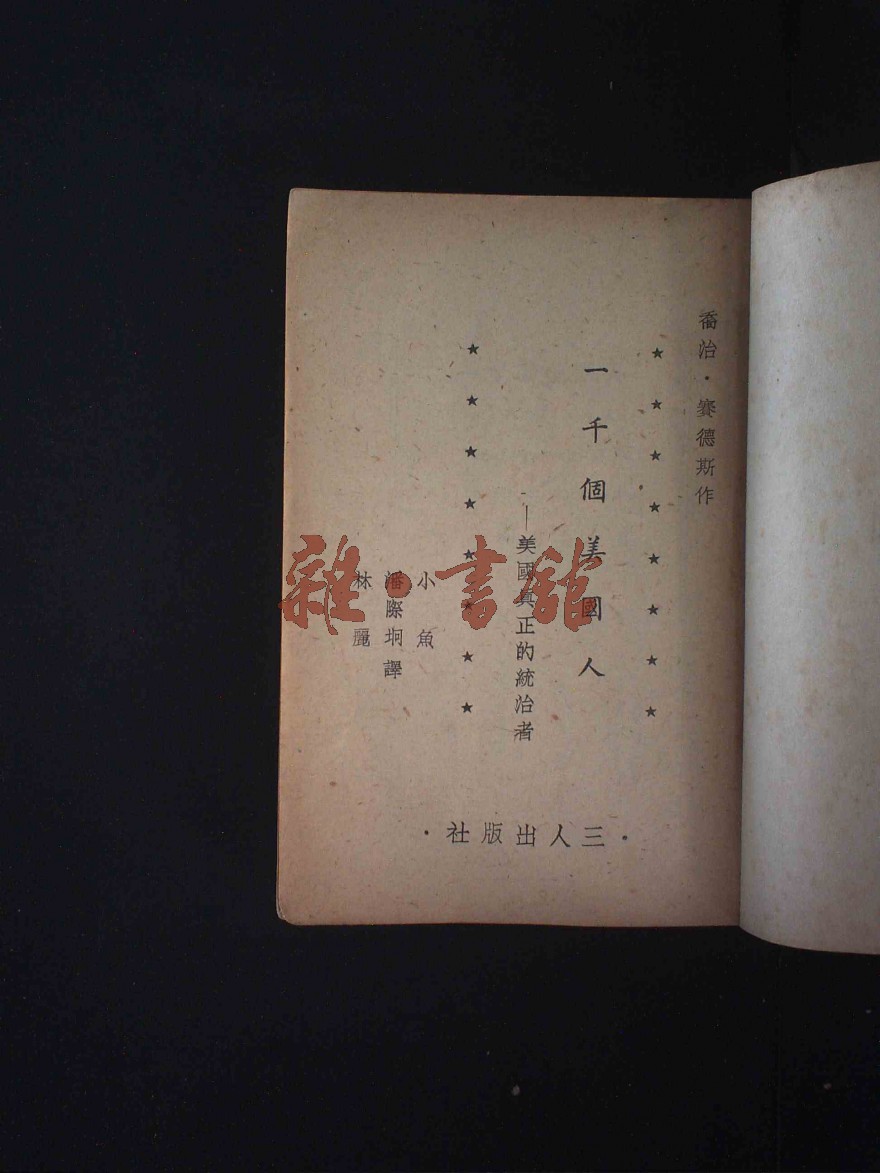 喬治·賽德斯作
一千個美國人
—美國眞正的統治者
小魚
潘際坰譯
林麗
·三人出版社·
雜·書舘